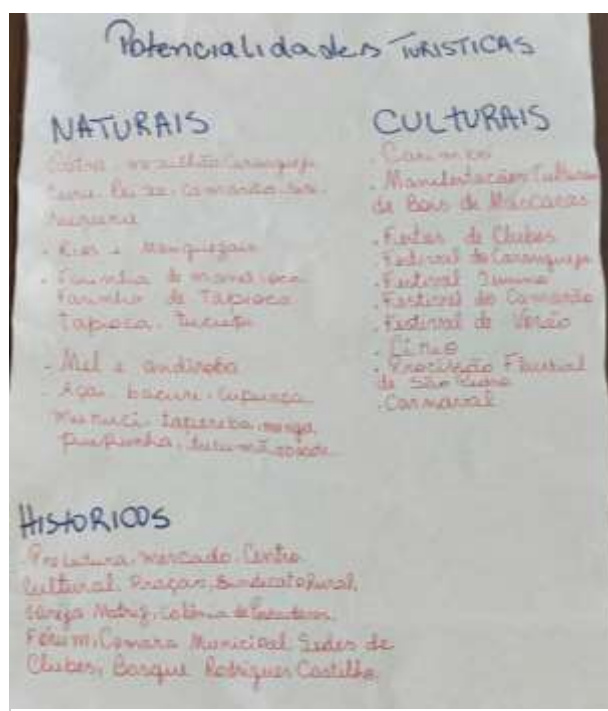 Potencialidades TURISTICAS
NATURAIS
Ostra, mexilhão, Caranguejo
turu, Peixe, Camarão, siri
- Rios e Manguezais
- Farinha de mandioca
Farinha de Tapioca
Tapioca, tucupi
- Mel e andiroba
- Açaí, bacuri, cupuaçu
Muruci, taperebá, manga,
pupunha, tucumã,
CULTURAIS
. Carimbó
. Manifestações
de Bois de Máscaras
. Festas de Clubes
. Festival do Caranguejo
. Festival Junino
. Festival do Camarão
. Festival de Verão
. Círio
. Procissão Fluvial
de São Pedro
. Carnaval
HISTORICOS
Prefeitura, mercado, Centro
Cultural, Praças, Sindicato Rural,
Igreja Matriz, Colônia de Pescadores,
Fórum, Camara Municipal Sedes de
Clubes, Bosque Rodrigues Castilho,